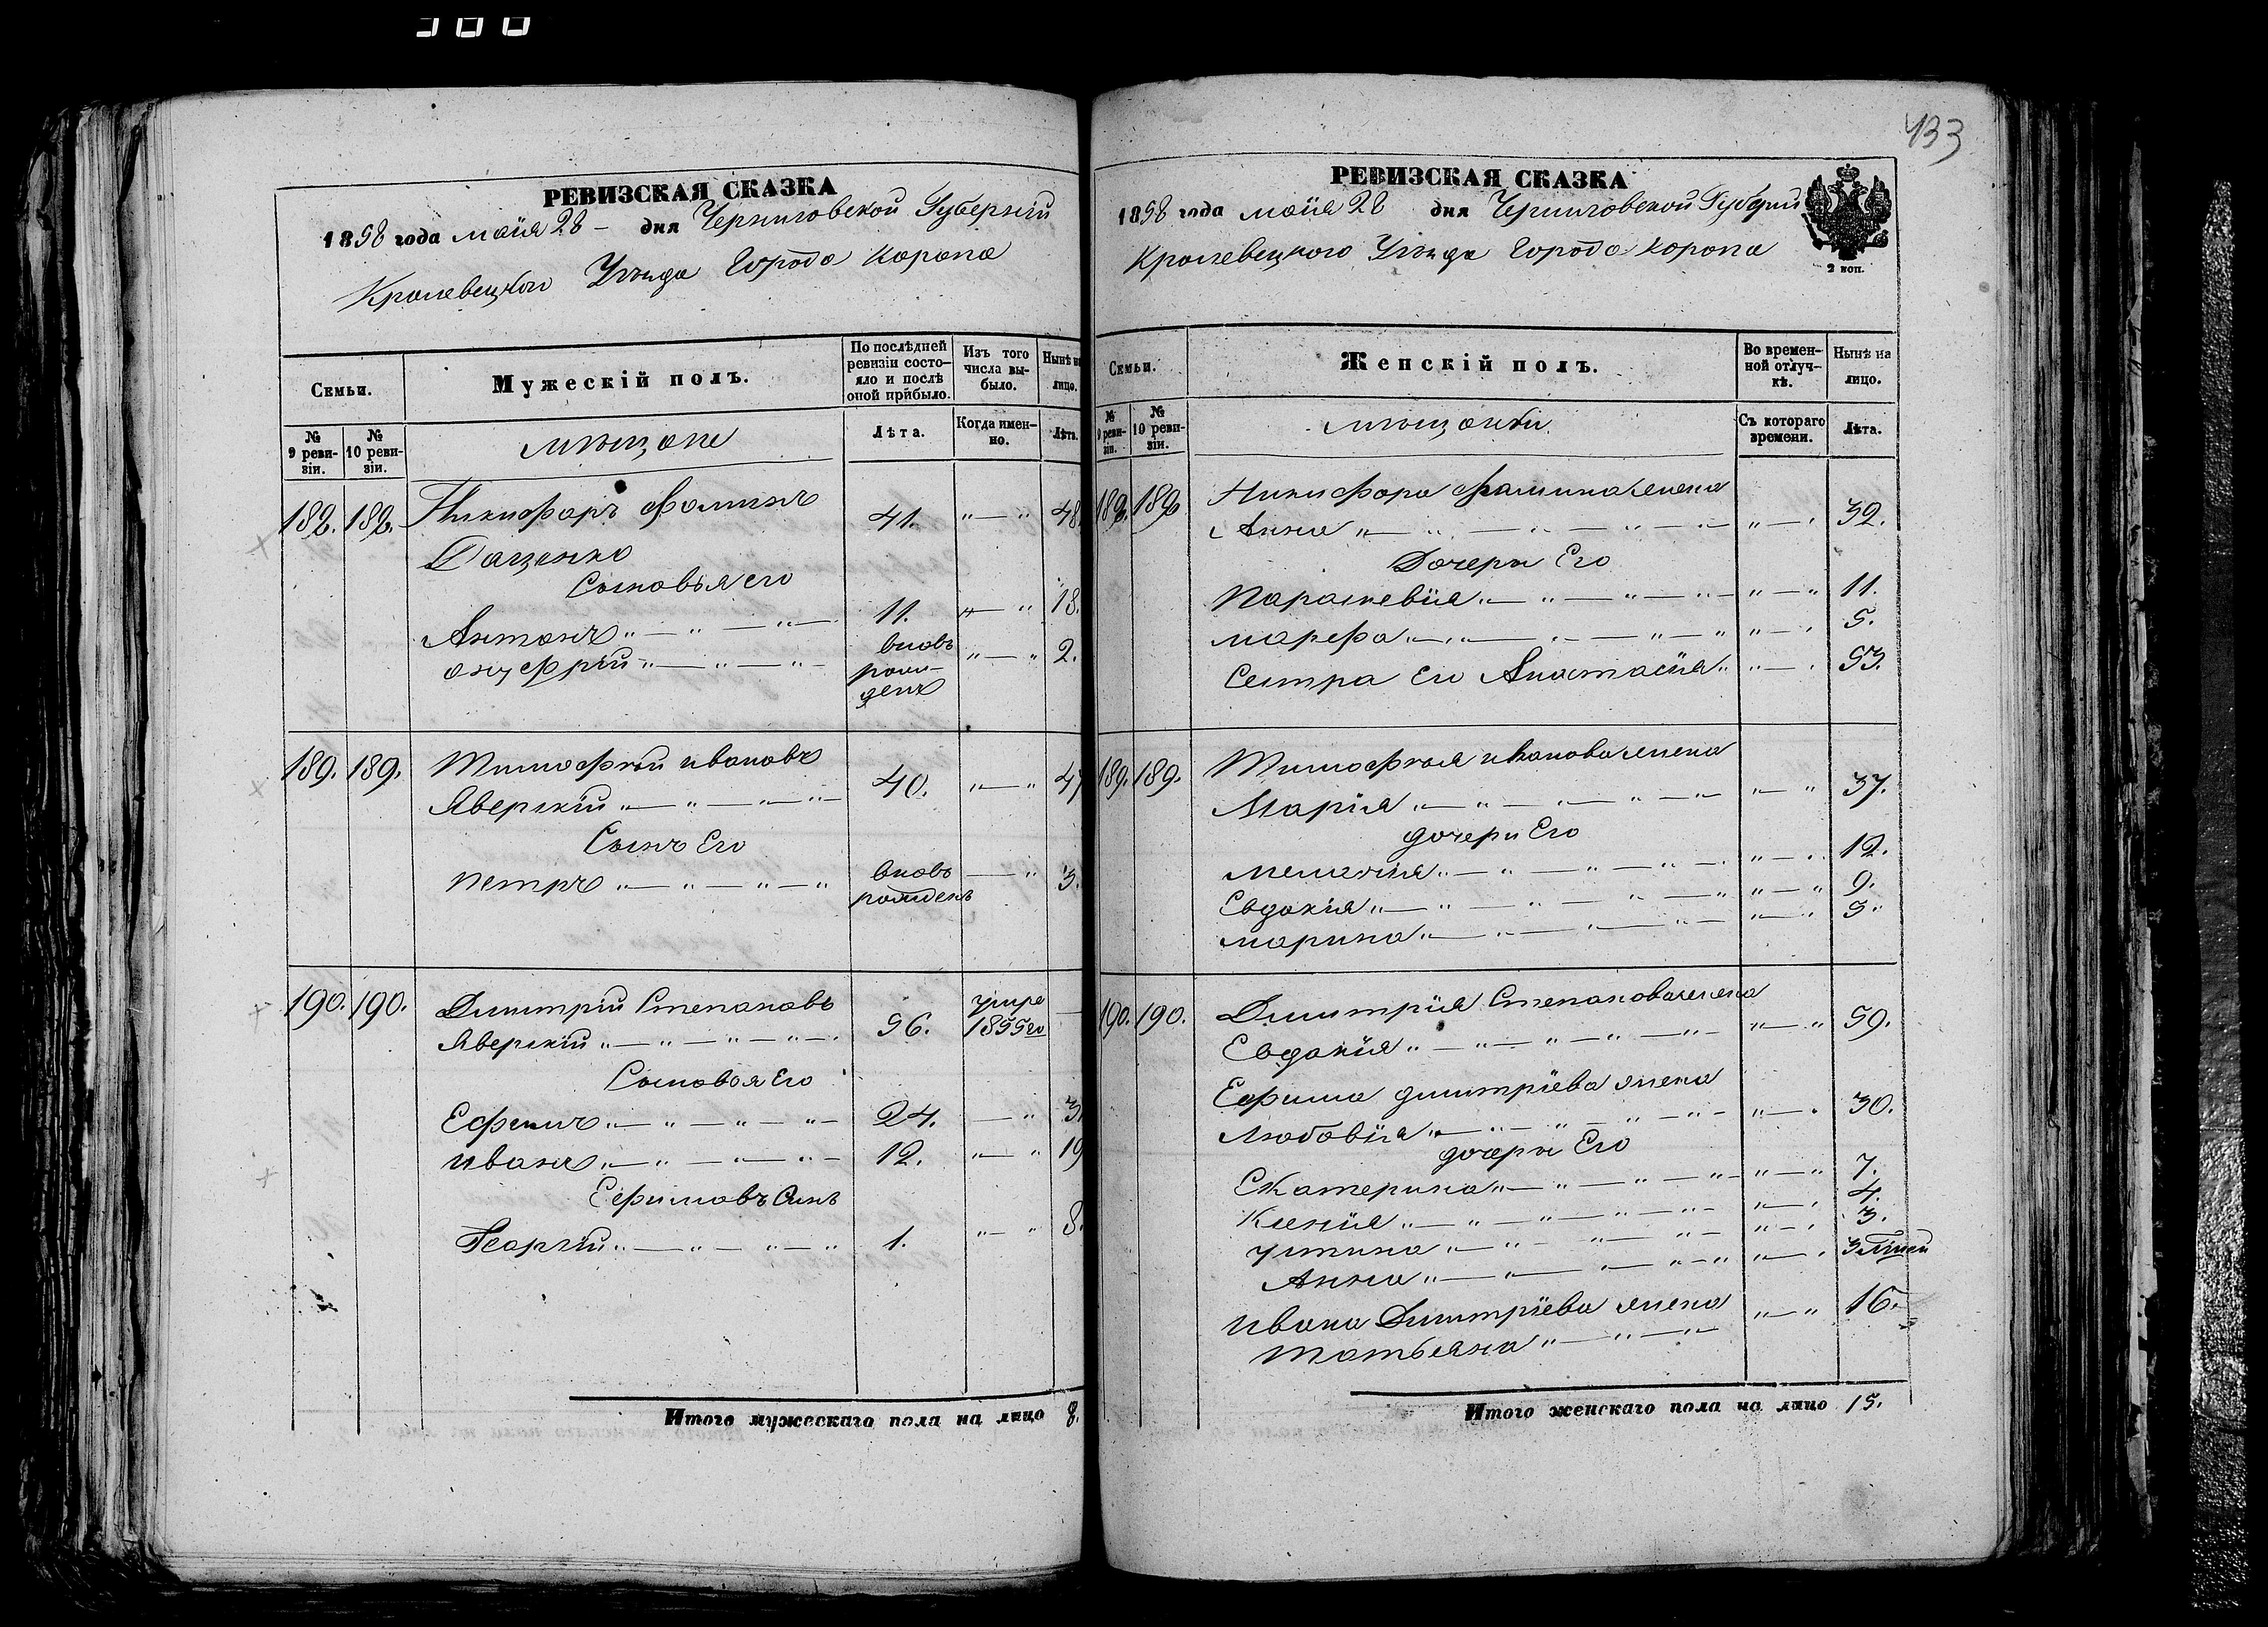 433
РЕВИЗСКАЯ СКАЗКА
1858 года маія 28 - дня Черниговской Губерніи
Кролевецкого Уѣзда Города Коропа
Семьи.
Мужескій полъ.
По послѣдней ревизіи состояло и послѣ оной прибыло.
Изъ того числа выбыло.
Нынѣ на лицо.
№ 9 ревизіи.
№ 10 ревизіи.
мѣщане
Лѣта.
Когда именно.
Лѣта.
188. 188. Никифоръ Фоминъ 41. "—" 48.
Даценко
Сыновья его
Антонъ "—"—"—" 11. "—" 18.
Онуфрій "—"—"— вновь рожденъ "—" 2.
189. 189. Тимофѣй Ивановъ
Яверскій "—"—"—" 40. "—" 47
Сынъ Его
Петръ "—"—"—" вновь рожденъ —" 3.
190. 190. Димитрій Степановъ
Яверскій "—"—"—"—. 56. умре 1855го —
Сыновья Его
Ефимъ "—"—"—"— 24. —" 3
Иванъ "—"—"—"— 12. "—" 19
Ефимовъ Сынъ
Георгій "—"—"—" 1. "—" 8.
Итого мужескаго пола на лицо 8.
РЕВИЗСКАЯ СКАЗКА
1858 года маія 28 дня Черниговской Губерніи
Кролевецкого Уѣзда Города Коропа
2 коп.
Семьи.
Женскій полъ.
Во временной отлучкѣ.
Нынѣ на лицо.
№ 9 ревизіи.
№ 10 ревизіи.
мѣщанки
Съ котораго времени.
Лѣта.
188. 188 Никифора Фомина жена
Анна "—"—"—"—"— "—" 32.
Дочери Его
Параскевія "—"—"—"— "—" 11.
Марефа "—"—"—"—" "—" 5.
Сестра Его Анастасія " "—" 53.
189. 189. Тимофѣя Иванова жена
Марія "—"—"—"—"— "—" 37.
дочери Его
Меланія "—"—"—"—. "—" 12.
Евдокія "—"—"—"—" "—" 9.
Марина "—"—"—"—"— "—" 3.
190. 190. Димитрія Степанова жена
Евдокія "—"—"—"—"— "—" 59.
Ефима Димитріева жена
Любовія "—"—"—"—"— "—" 30.
дочери Его
Екатерина "—"—"—"— "—" 7.
Ксенія "—"—"—"—"— "—" 4.
Устина "—"—"—"—"— "—" 3.
Анна "—"—"—"—" "—" 3
Ивана Димитріева жена
Татьяна "—"—"— "—" 16.
Итого женскаго пола на лицо 15.